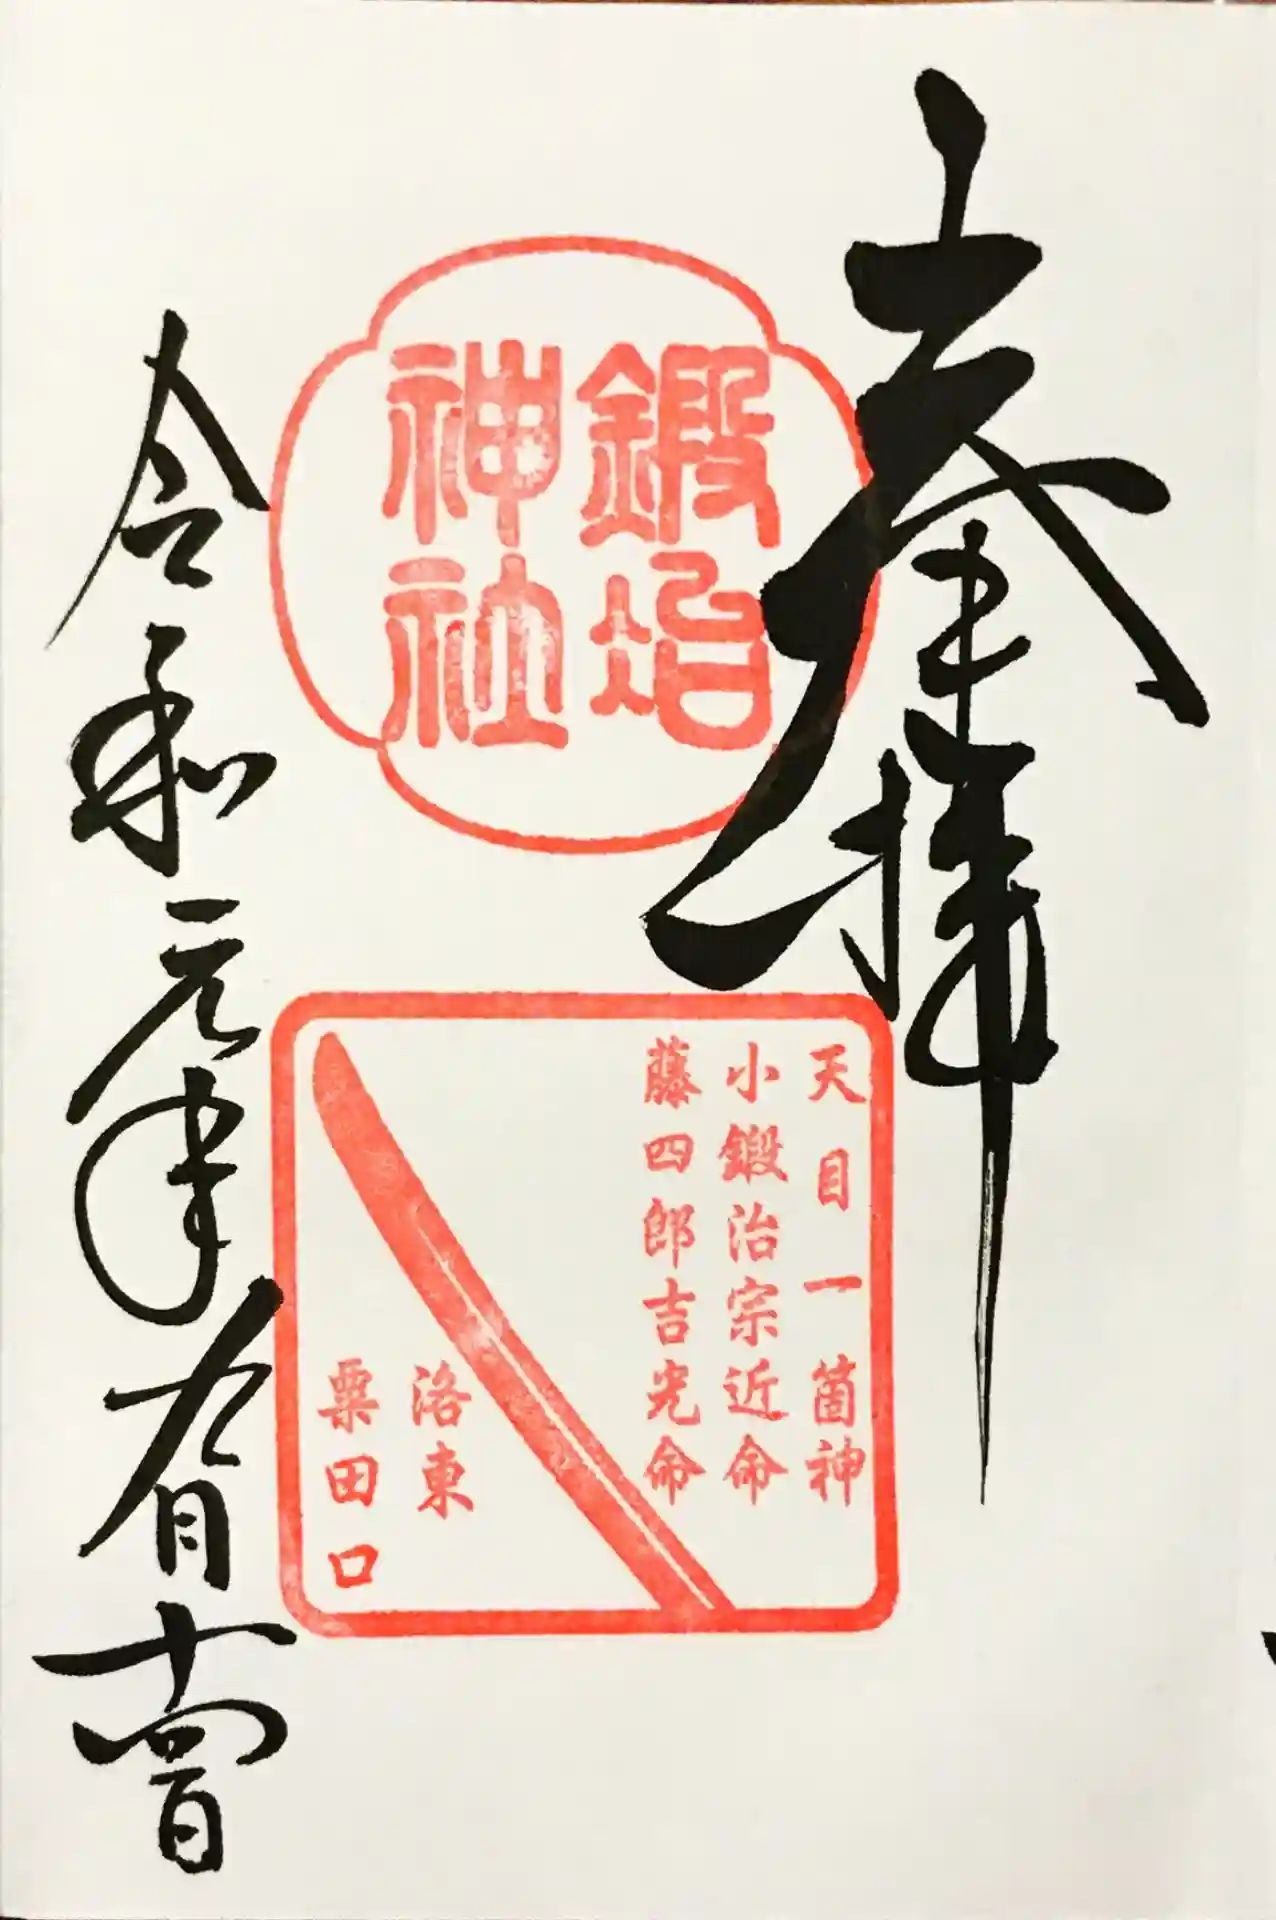 奉拝
鍛冶
神社
天目一箇神
小鍛治宗近命
藤四郎吉光命
洛東
粟田口
令和元年九月十四日